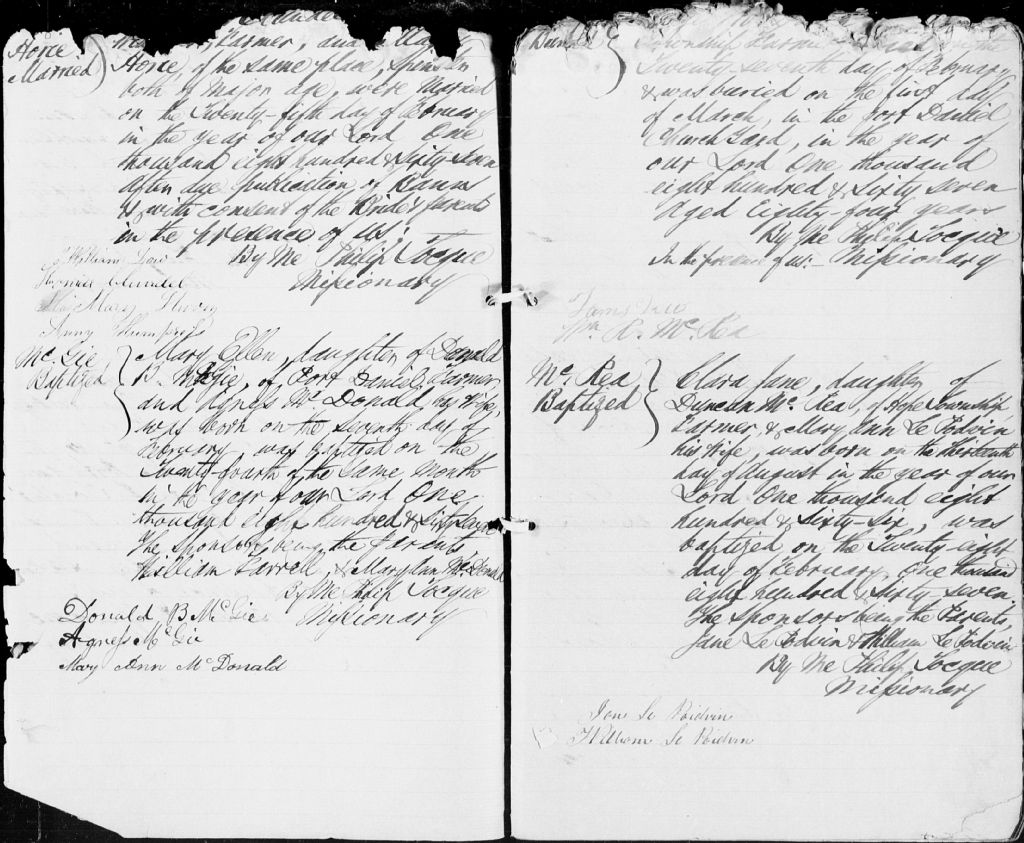 Horie
Married
Farmer, and
Horie, of the same place, Spinster
both of Major age, were Married
on the Twenty-fifth day of February
in the year of our Lord One
thousand eight hundred & Sixty Seven
After due publication of Banns
& with consent of the Bride's parents
in the presence of us;
By Me Philip Tocque
Missionary
William
Mary
Mc. Gie
Baptized
Mary Ellen, daughter of Donald
B. McGie, of Port Daniel, Farmer
and Agnes Mc. Donald, his Wife,
was born on the seventh day of
February was baptized on the
Twenty fourth of the same month
in the year of our Lord One
thousand eight hundred & Sixty Seven
The Sponsors being the parents
William Farrell, & Mary Ann McDonald
By Me Philip Tocque
Missionary
Donald B McGie
Agness McGie
Mary Ann McDonald
Township Farmer the
Twenty-seventh day of February
& was buried on the first day
of March, in the Port Daniel
Church Yard, in the year of
our Lord One thousand
eight hundred & Sixty seven
Aged Eighty-four years
By Me Philip Tocque
In the presence of us:- Missionary
Wm. R. Mc. Rea
Mc. Rea
Baptized
Clara Jane, daughter of
Duncan Mc. Rea, of Hope Township
Farmer, & Mary Ann Le Podvin
his Wife, was born on the thirteenth
day of August in the year of our
Lord One thousand eight
hundred & Sixty-Six, was
baptized on the Twenty-eight
day of February, One thousand
eight hundred & Sixty-seven.
The Sponsors being the Parents,
Jane Le Podvin & William Le Podvin
By Me Philip Tocque
Missionary
Jane Le Poidvin
William Le Poidvin